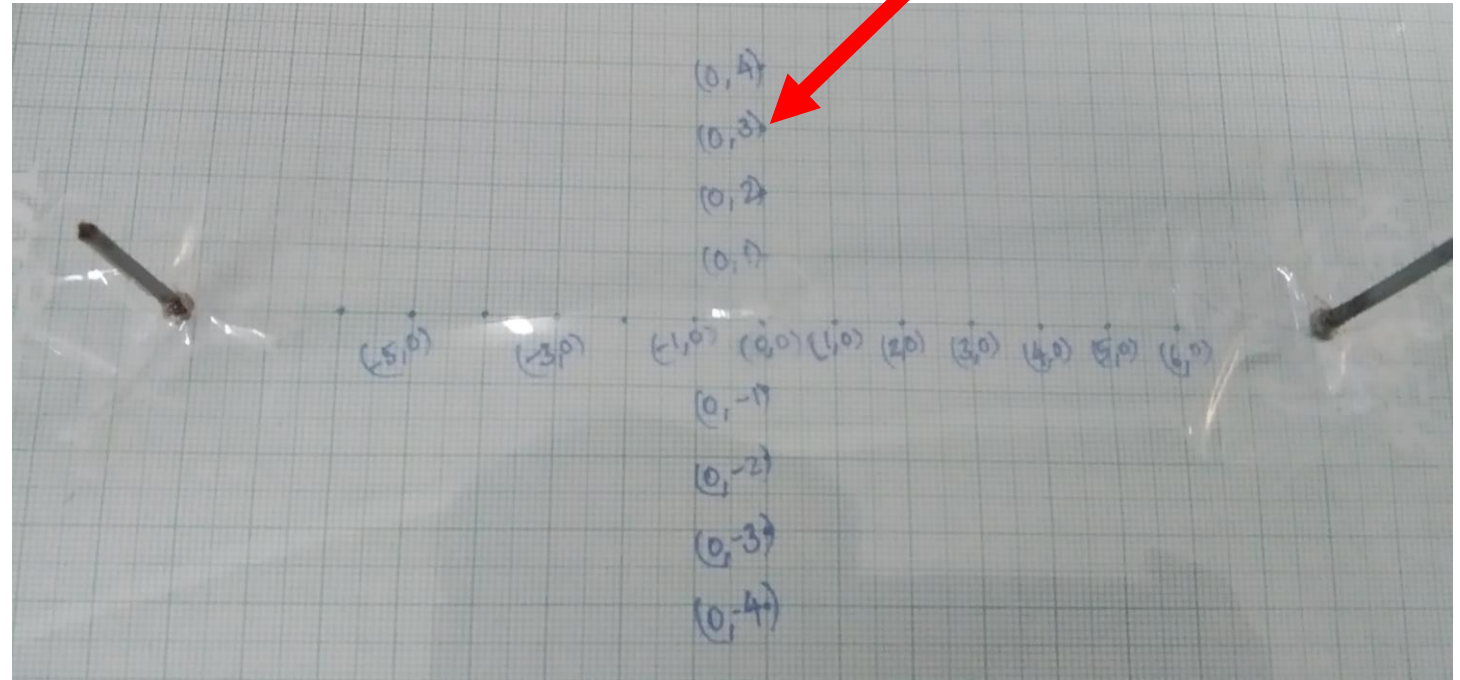 (0, 4)
(0, 3)
(0, 2)
(0, 1)
(-5, 0) (-3, 0) (-1, 0) (0, 0) (1, 0) (2, 0) (3, 0) (4, 0) (5, 0) (6, 0)
(0, -1)
(0, -2)
(0, -3)
(0, -4)